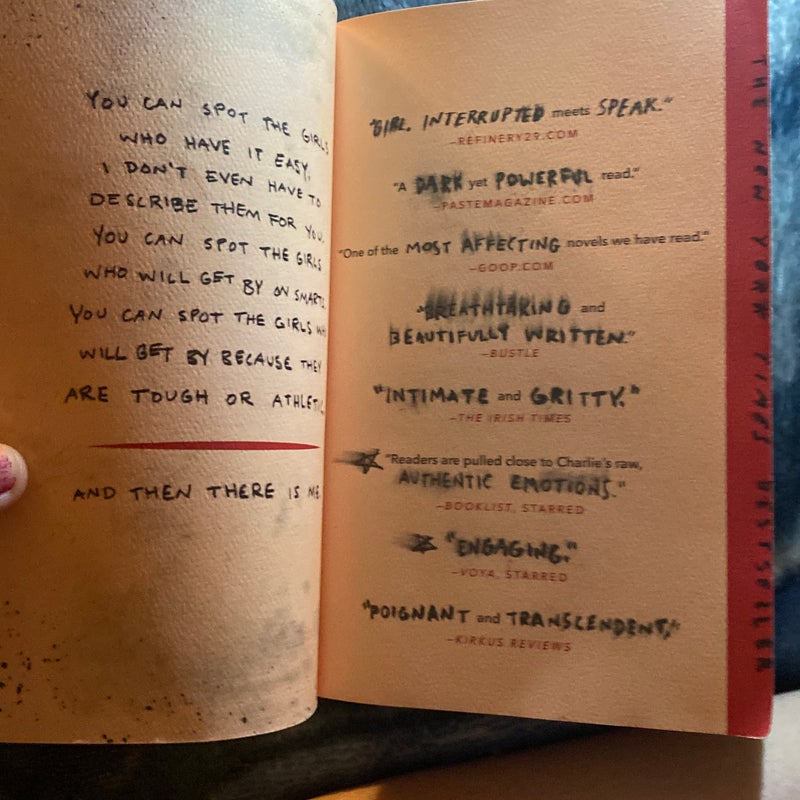 YOU CAN SPOT THE GIRLS
WHO HAVE IT EASY.
I DON'T EVEN HAVE TO
DESCRIBE THEM FOR YOU.
YOU CAN SPOT THE GIRLS
WHO WILL GET BY ON SMARTS.
YOU CAN SPOT THE GIRLS WH
WILL GET BY BECAUSE THEY
ARE TOUGH OR ATHLETI
AND THEN THERE IS ME
"GIRL, INTERRUPTED meets SPEAK."
–REFINERY29.COM
"A DARK yet POWERFUL read."
–PASTEMAGAZINE.COM
"One of the MOST AFFECTING novels we have read."
–GOOP.COM
"BREATHTAKING and
BEAUTIFULLY WRITTEN."
–BUSTLE
"INTIMATE and GRITTY."
–THE IRISH TIMES
"Readers are pulled close to Charlie's raw,
AUTHENTIC EMOTIONS."
–BOOKLIST, STARRED
"ENGAGING."
–VOYA, STARRED
"POIGNANT and TRANSCENDENT."
–KIRKUS REVIEWS
THE NEW YORK TIMES BESTSELLER